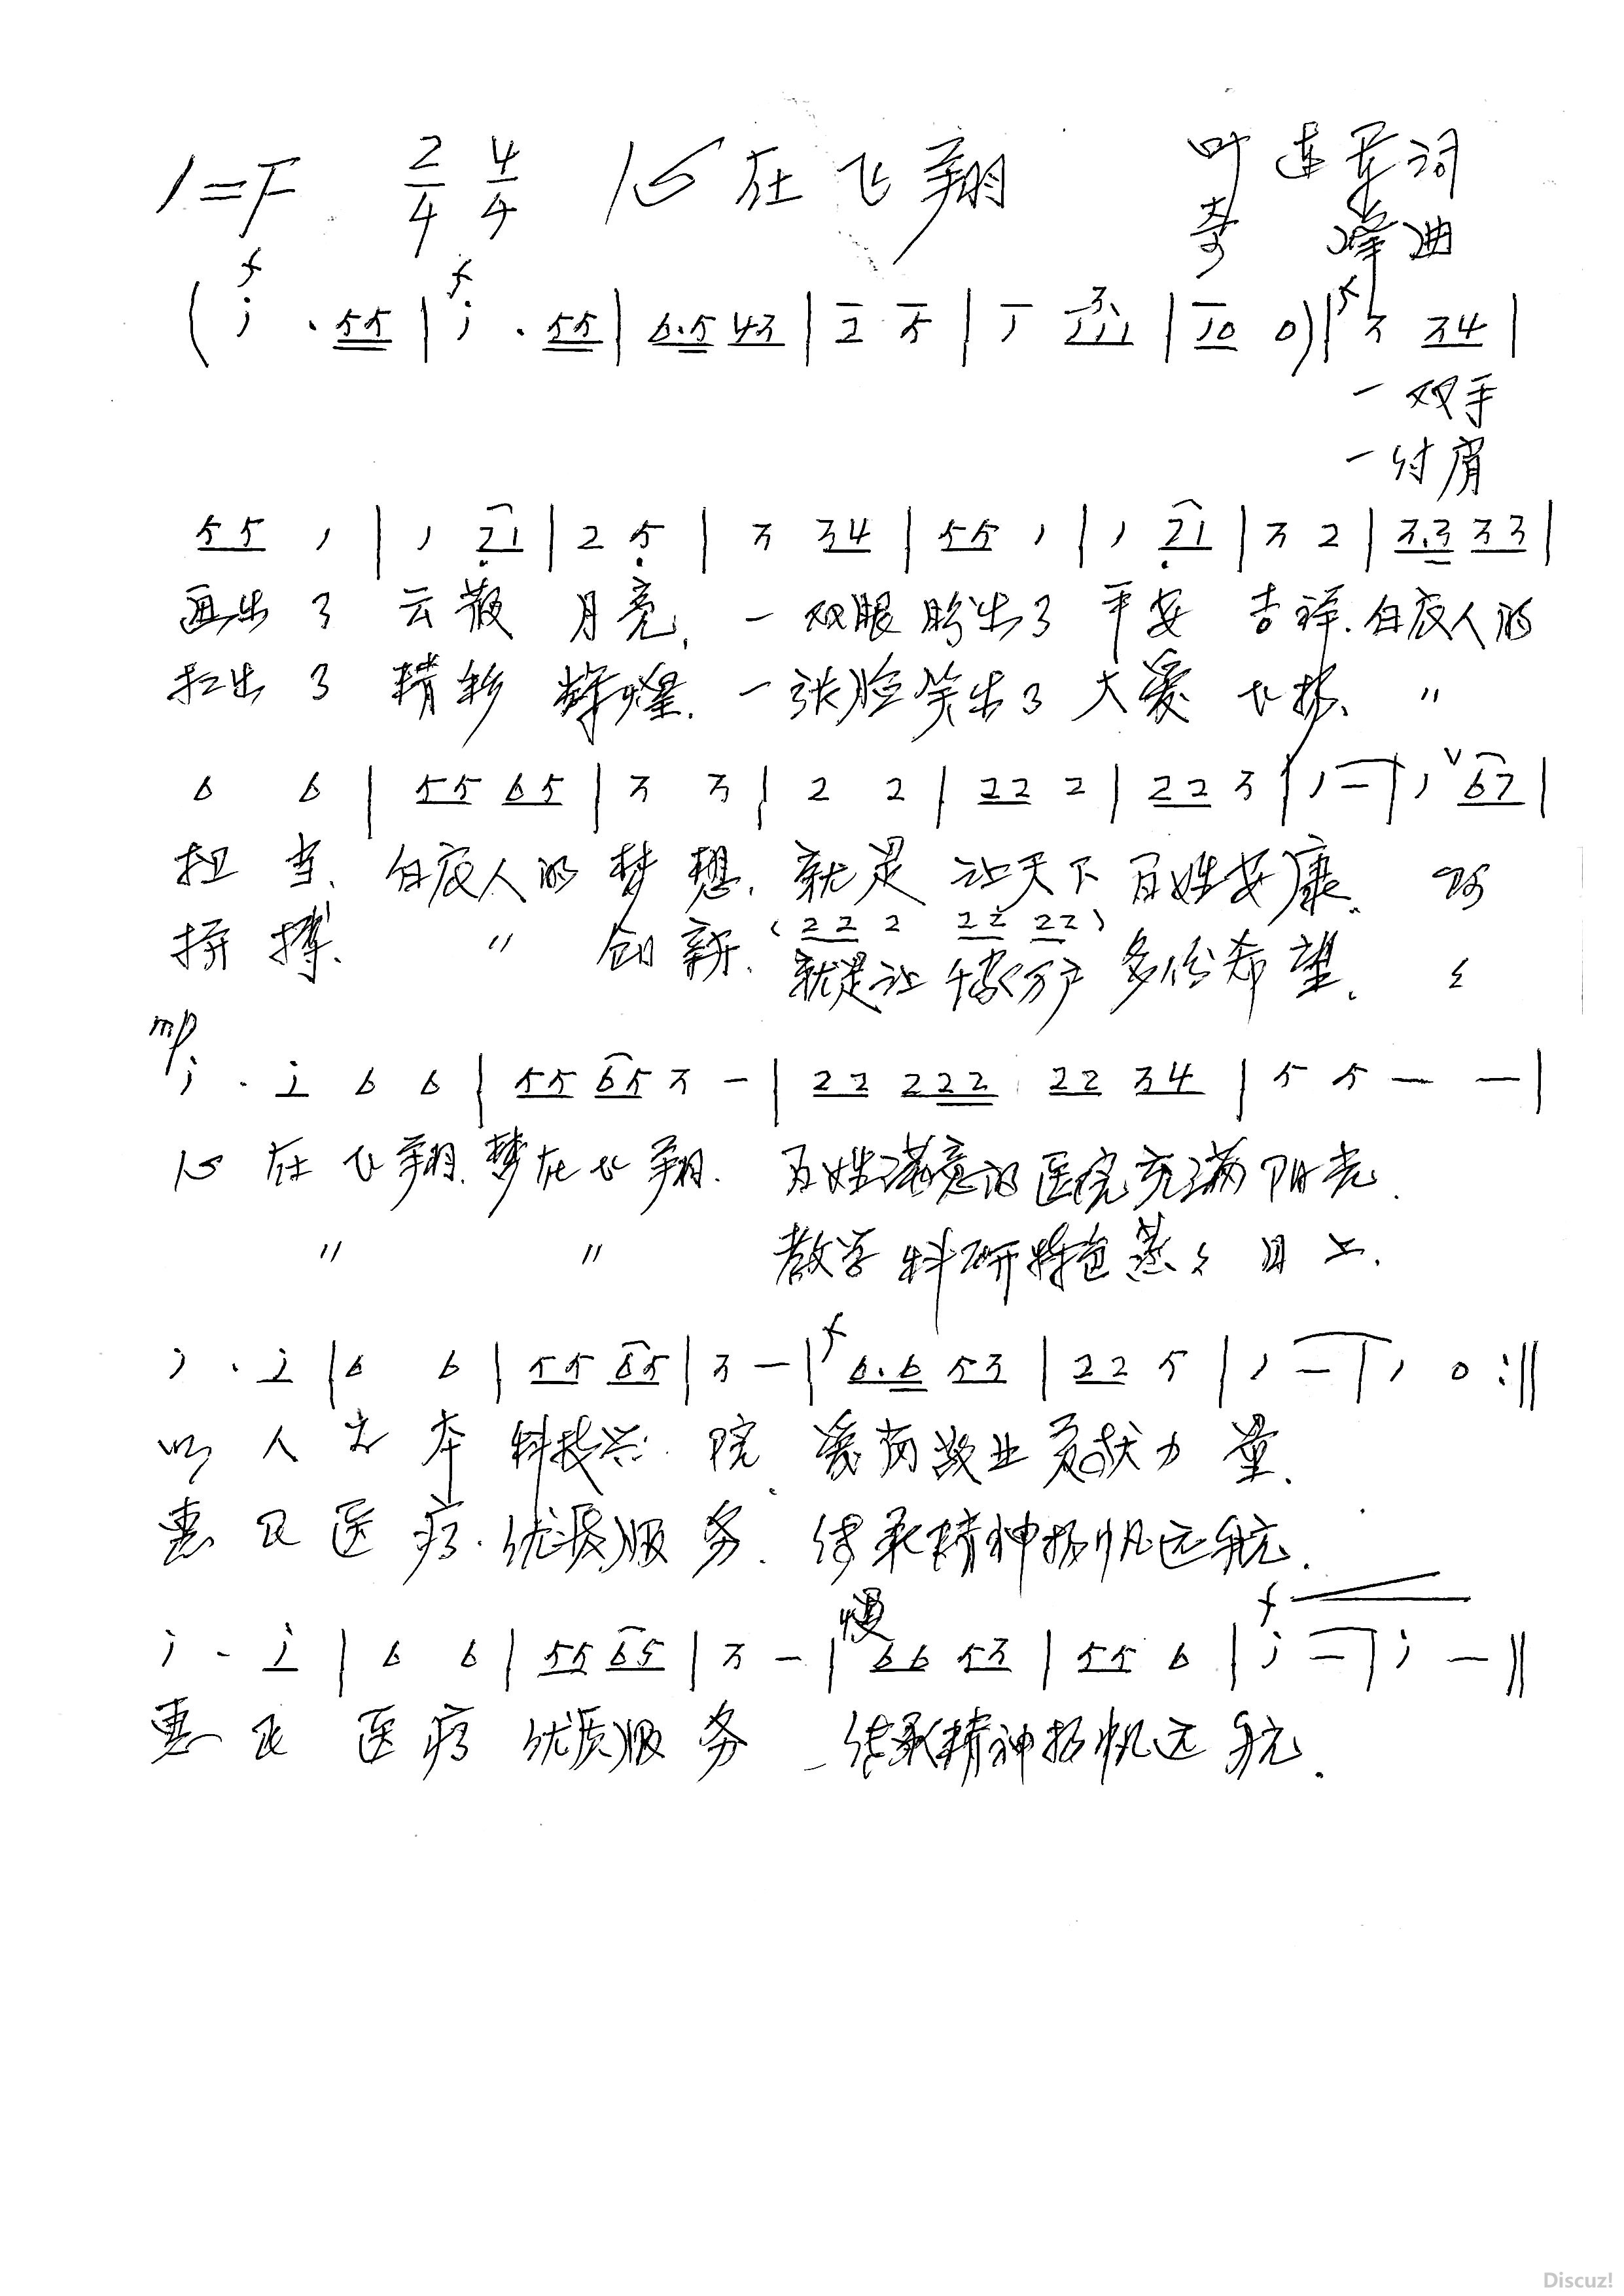 1=F 2/4 4/4 心在飞翔 叶连军词
奇峰曲
f f
(i · 55 | i · 55 | 6.5 43 | 2 5 | 1 111 | 10 0) | f 3 34 |
一 双手
一 付肩
55 1 | 1 21 | 2 5 | 3 34 | 55 1 | 1 21 | 3 2 | 3.3 33 |
画出了云散月亮,一双眼盼出了平安吉祥.白衣人的
扛出了精彩辉煌.一张脸笑出了大爱飞扬、 〃
6 6 | 55 65 | 3 3 | 2 2 | 22 2 | 22 3 | 1 - | 1 V 67 |
担当、白衣人的梦想.就是让天下百姓安康.啊
(22 2 22 22)
拼搏、 〃 创新.就是让千家万户多份希望.
mp
i · i 6 6 | 55 65 3 - | 22 222 22 34 | 5 5 - - |
心在飞翔.梦在飞翔.百姓满意的医院充满阳光.
〃 〃 教学科研特色蒸蒸日上.
i · i | 6 6 | 55 65 | 3 - | f 6.6 53 | 22 5 | 1 - | 1 0 :||
以人为本科技兴院、爱岗敬业贡献力量.
惠民医疗.优质服务.传承精神扬帆远航.
慢 f
i · i | 6 6 | 55 65 | 3 - | 66 53 | 55 6 | i - | i - ||
惠民医疗优质服务 传承精神扬帆远航.
Discuz!